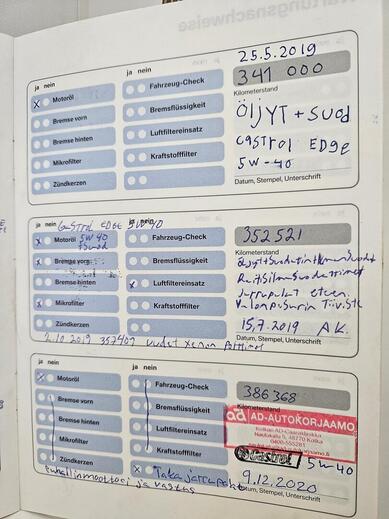 Wartungsnachweise
25.5.2019
ja nein
ja nein
341 000
Motoröl
Fahrzeug-Check
Kilometerstand
Bremse vorn
Bremsflüssigkeit
ÖLJYT + SUOD
Bremse hinten
Luftfiltereinsatz
CASTROL EDGE
Mikrofilter
Kraftstofffilter
5W-40
Zündkerzen
Datum, Stempel, Unterschrift
CASTROL EDGE 5W40
ja nein
ja nein
352521
Motoröl 5W40
Fahrzeug-Check
Kilometerstand
Bremse vorn
Bremsflüssigkeit
Bremse hinten
Luftfiltereinsatz
Jarrupalat eteen.
Mikrofilter
Kraftstofffilter
Zündkerzen
15.7.2019 A K.
2.10.2019 357409 uudet xenon
Datum, Stempel, Unterschrift
ja nein
ja nein
386368
Motoröl
Fahrzeug-Check
Kilometerstand
Bremse vorn
Bremsflüssigkeit
ad AD-AUTOKORJAAMO
Bremse hinten
Luftfiltereinsatz
48770 Kotka
Mikrofilter
Kraftstofffilter
Castrol 5W40
Zündkerzen
Taka jarrupalat
9.12.2020
Puhallinmoottori ja vastus
Datum, Stempel, Unterschrift